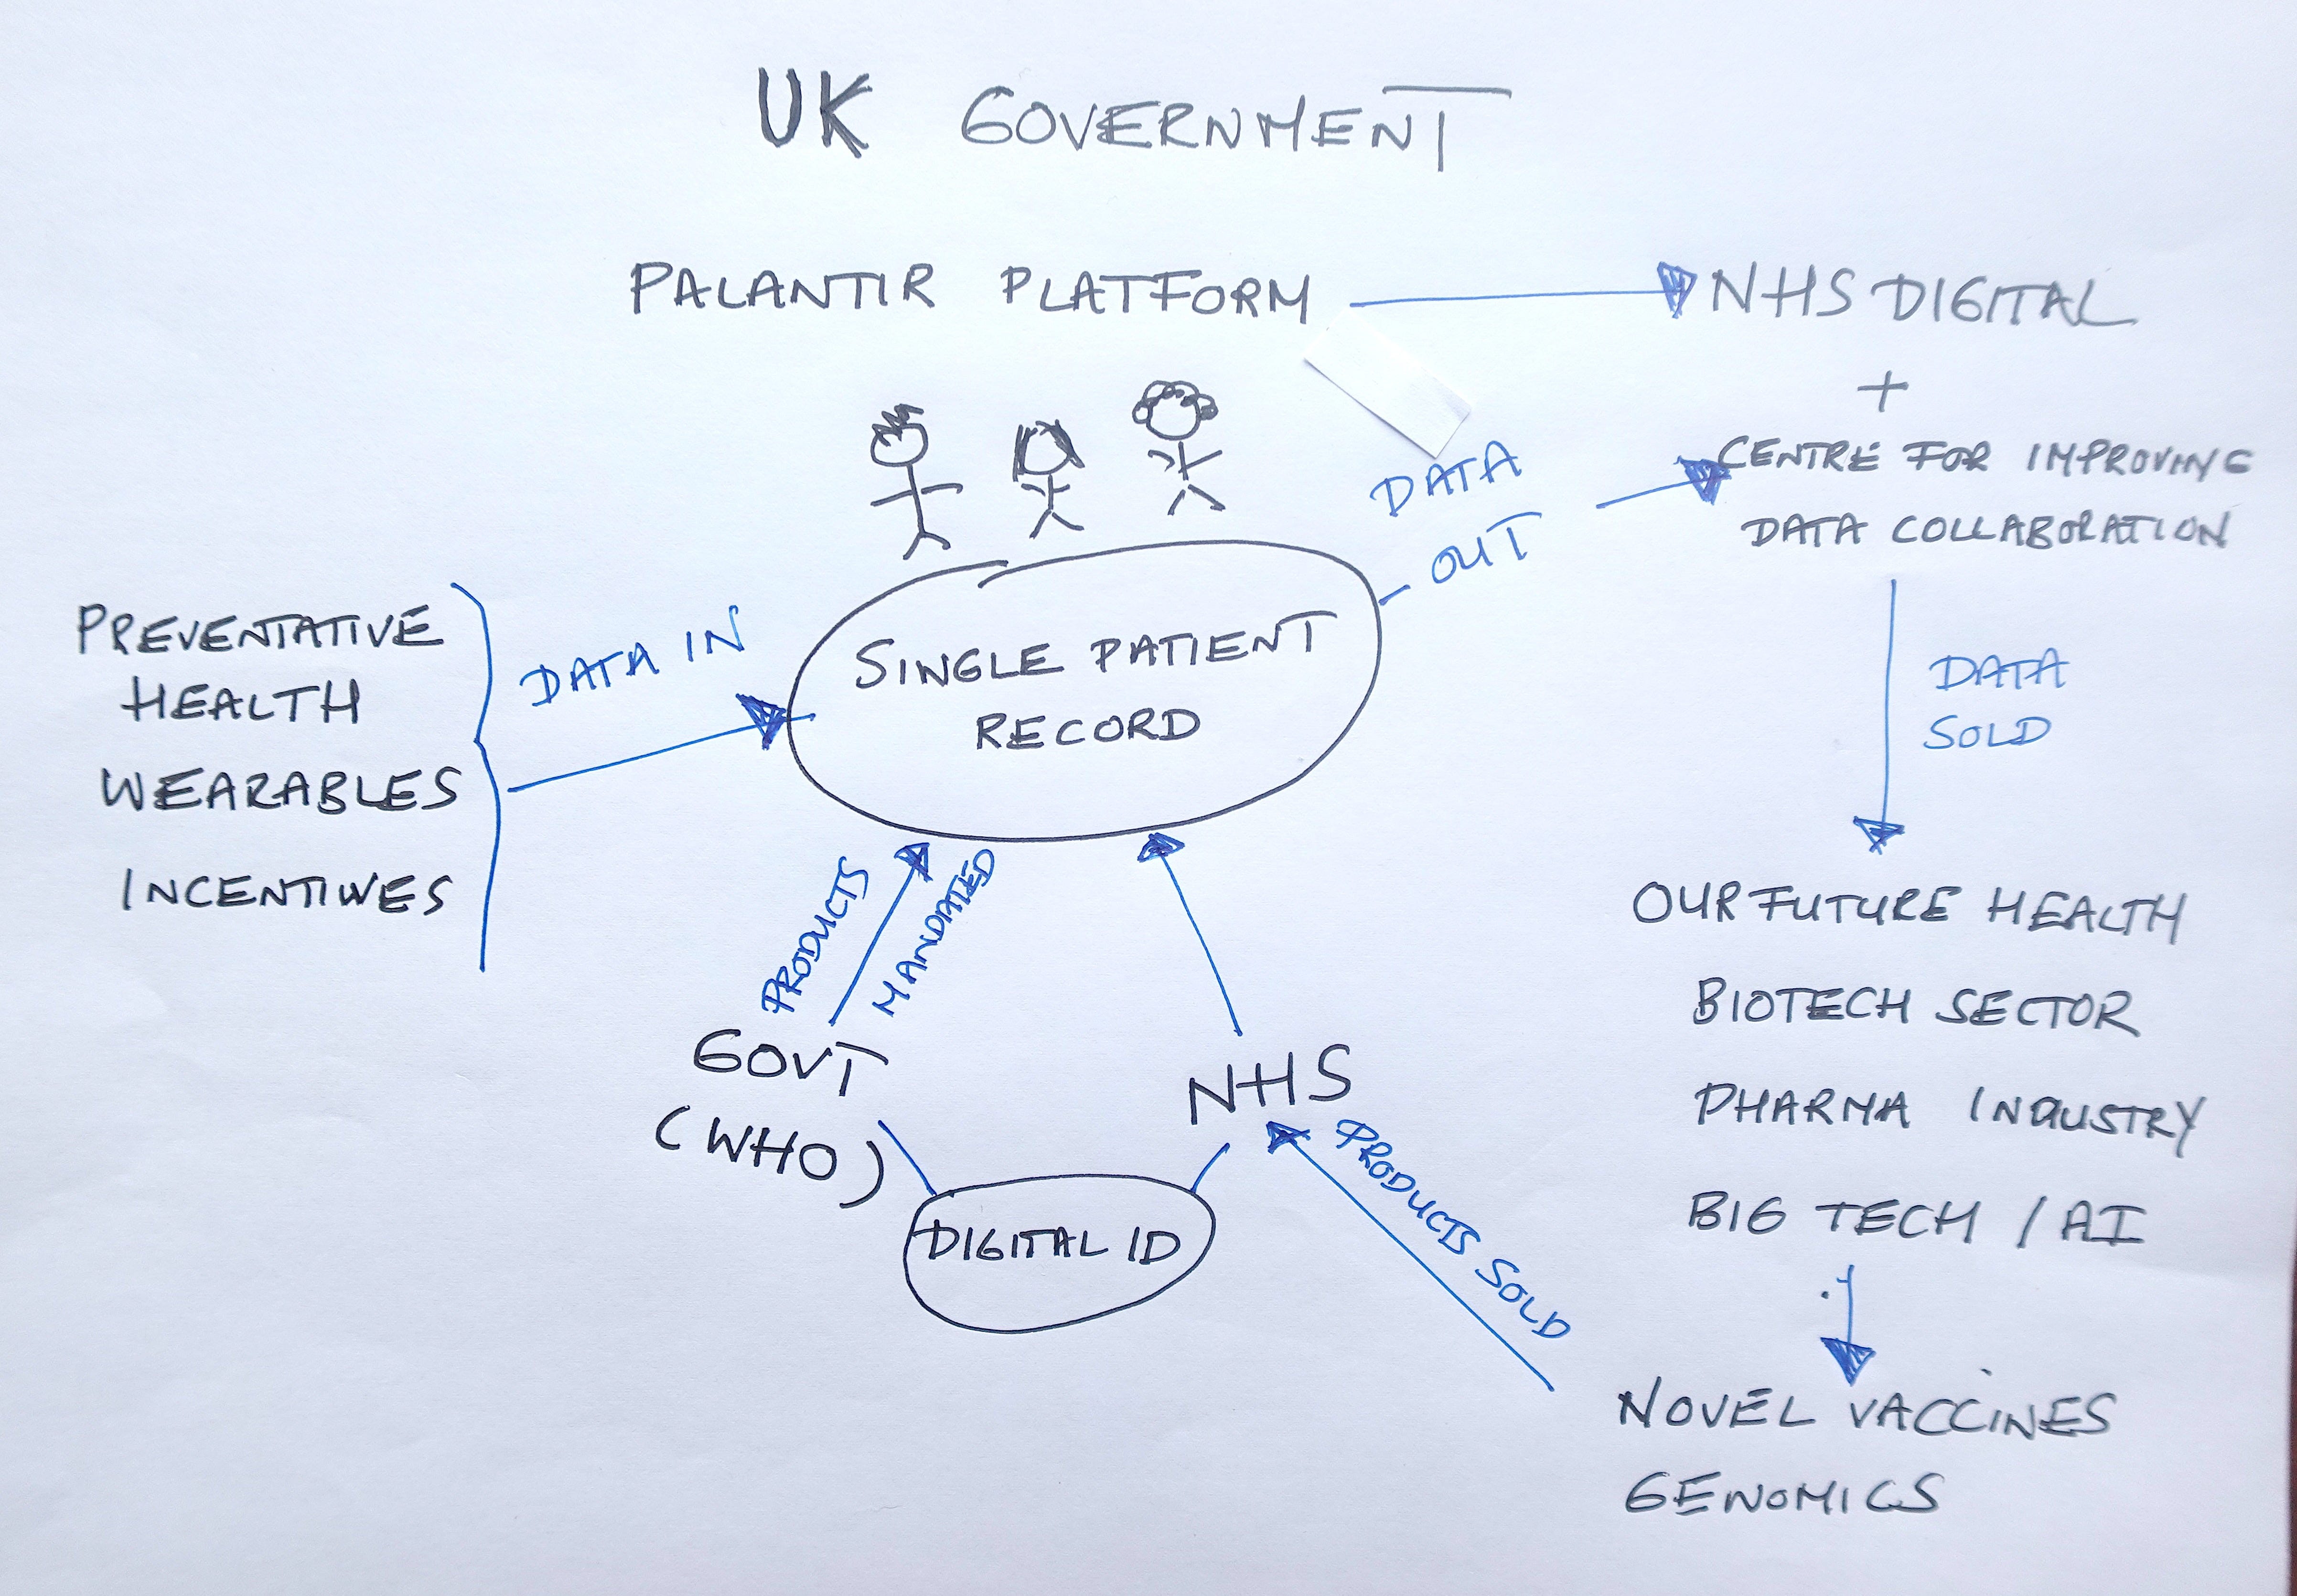 UK GOVERNMENT
PALANTIR PLATFORM
NHS DIGITAL
+
CENTRE FOR IMPROVING
DATA COLLABORATION
DATA
OUT
PREVENTATIVE
HEALTH
WEARABLES
INCENTIVES
DATA IN
SINGLE PATIENT
RECORD
DATA
SOLD
PRODUCTS
MANDATED
GOVT
(WHO)
NHS
DIGITAL ID
PRODUCTS SOLD
OUR FUTURE HEALTH
BIOTECH SECTOR
PHARMA INDUSTRY
BIG TECH / AI
NOVEL VACCINES
GENOMICS